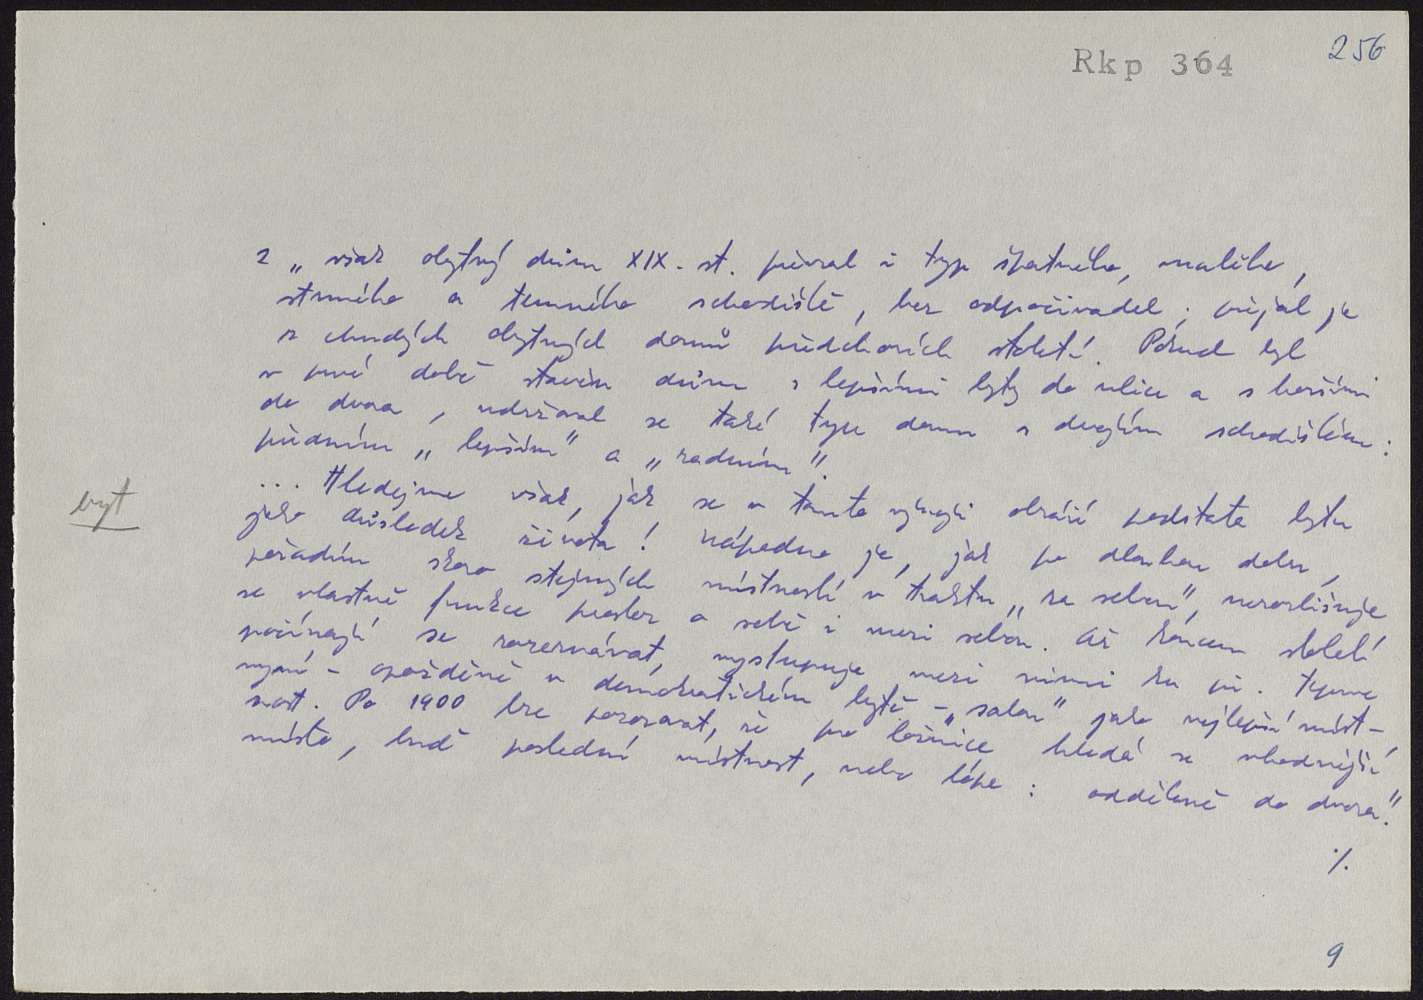 256
Rkp 364
2 „ však obytný dům XIX. st. převzal i typ špatného, malého,
strmého a temného schodiště, bez odpočivadel; přijal je
z chudých obytných domů předchozích století. Pokud byl
v prvé době stavěn dům s lepšími byty do ulice a s horšími
do dvora, udržoval se také typ domu s dvojím schodištěm:
předním „lepším" a „zadním".
... Hledejme však, jak se v tomto vývoji obráží podstata bytu
byt
jako důsledek života! Nápadno je, jak po dlouhou dobu,
pořadím skoro stejných místností v traktu „za sebou", nerozlišuje
se vlastně funkce prostor o sobě i mezi sebou. Až koncem století
počínají se rozeznávat, vystupuje mezi nimi ku př. teprve
nyní - opožděně v demokratickém bytě - „salon" jako nejlepší míst-
nost. Po 1900 lze pozorovat, že pro ložnice hledá se vhodnější
místo, buď poslední místnost, nebo lépe: odděleně do dvora."
./.
9